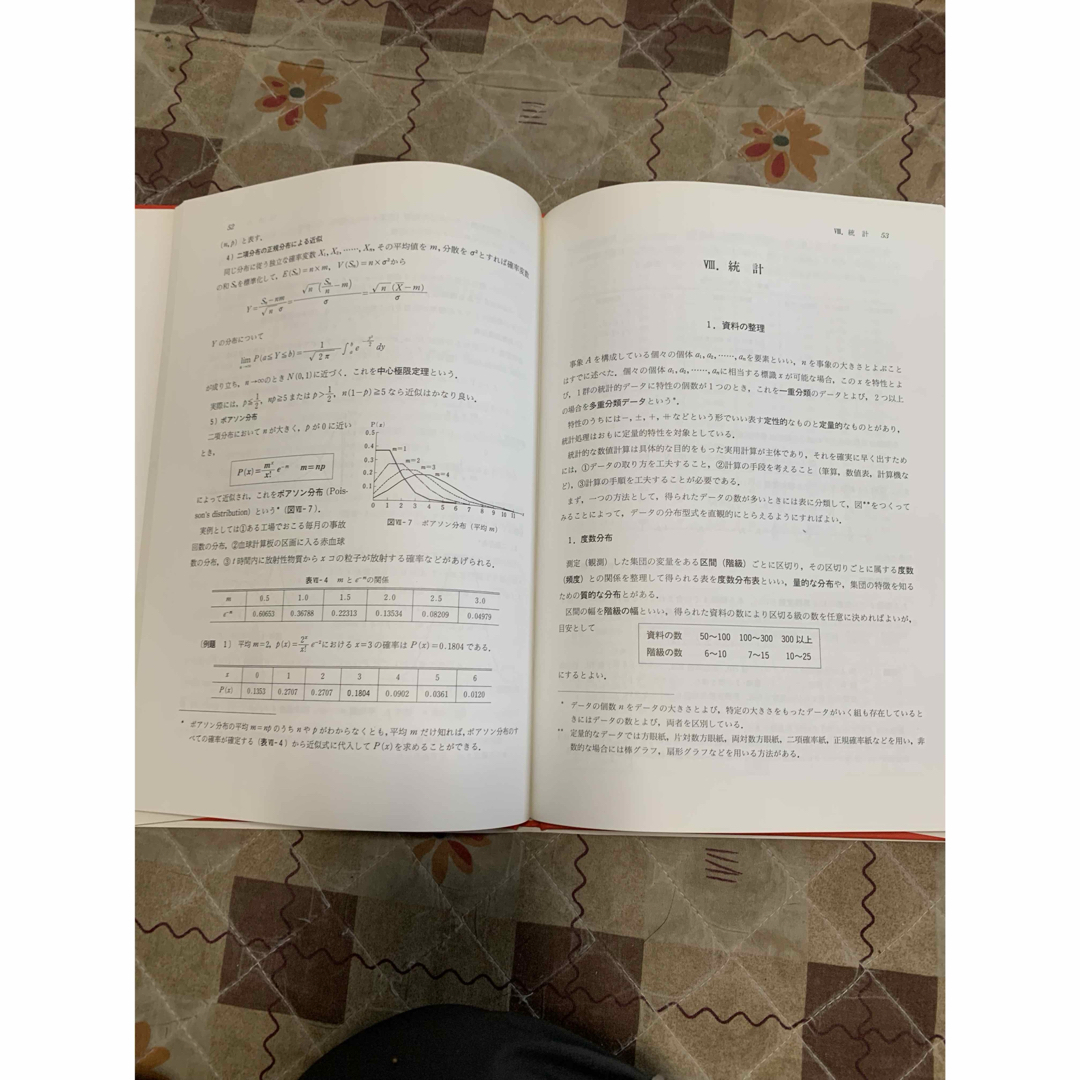 52
(n, p) と表す.
4) 二項分布の正規分布による近似
同じ分布に従う独立な確率変数 X₁, X₂, ……, Xₙ, その平均値を m, 分散を σ² とすれば確率変数
の和 Sₙ を標準化して, E(Sₙ)=n×m, V(Sₙ)=n×σ² から
Y= (Sₙ−nm)/(√n σ) = √n (Sₙ/n −m)/σ = √n (X̄−m)/σ
Y の分布について
lim P(a≦Y≦b)= 1/√2π ∫ₐᵇ e^(−y²/2) dy
が成り立ち, n→∞ のとき N(0, 1) に近づく. これを中心極限定理という.
実際には, p≦1/2, np≧5 または p>1/2, n(1−p)≧5 なら近似はかなり良い.
5) ポアソン分布
二項分布において n が大きく, p が 0 に近い
とき,
P(x)= mˣ/x! e⁻ᵐ m=np
によって近似され, これをポアソン分布 (Pois-
son's distribution) という* (図Ⅶ-7).
実例としては①ある工場でおこる毎月の事故
回数の分布, ②血球計算板の区画に入る赤血球
数の分布, ③ t 時間内に放射性物質から x コの粒子が放射する確率などがあげられる.
P(x)
0.5
0.4
0.3
0.2
0.1
m=1
m=2
m=3
m=4
0 1 2 3 4 5 6 7 8 9 10 11
図Ⅶ-7 ポアソン分布 (平均 m)
表Ⅶ-4 m と e⁻ᵐ の関係
m 0.5 1.0 1.5 2.0 2.5 3.0
e⁻ᵐ 0.60653 0.36788 0.22313 0.13534 0.08209 0.04979
〔例題 1〕 平均 m=2, p(x)= 2ˣ/x! e⁻² における x=3 の確率は P(x)=0.1804 である.
x 0 1 2 3 4 5 6
P(x) 0.1353 0.2707 0.2707 0.1804 0.0902 0.0361 0.0120
* ポアソン分布の平均 m=np のうち n や p がわからなくとも, 平均 m だけ知れれば, ポアソン分布のす
べての確率が確定する (表Ⅶ-4) から近似式に代入して P(x) を求めることができる.
Ⅷ. 統 計 53
Ⅷ. 統 計
1. 資料の整理
事象 A を構成している個々の個体 a₁, a₂, ……, aₙ を要素といい, n を事象の大きさとよぶこと
はすでに述べた. 個々の個体 a₁, a₂, ……, aₙ に相当する標識 x が可能な場合, この x を特性とよ
び, 1 群の統計的データに特性の個数が 1 つのとき, これを一重分類のデータとよび, 2 つ以上
の場合を多重分類データという*.
特性のうちには −, ±, +, ⧺ などという形でいい表す定性的なものと定量的なものとがあり,
統計処理はおもに定量的特性を対象としている.
統計的な数値計算は具体的な目的をもった実用計算が主体であり, それを確実に早く出すため
には, ①データの取り方を工夫すること, ②計算の手段を考えること (筆算, 数値表, 計算機な
ど), ③計算の手順を工夫することが必要である.
まず, 一つの方法として, 得られたデータの数が多いときには表に分類して, 図**をつくって
みることによって, データの分布型式を直観的にとらえるようにすればよい.
1. 度数分布
測定 (観測) した集団の変量をある区間 (階級) ごとに区切り, その区切りごとに属する度数
(頻度) との関係を整理して得られる表を度数分布表といい, 量的な分布や, 集団の特徴を知る
ための質的な分布とがある.
区間の幅を階級の幅といい, 得られた資料の数により区切る級の数を任意に決めればよいが,
目安として
資料の数 50〜100 100〜300 300 以上
階級の数 6〜10 7〜15 10〜25
にするとよい.
* データの個数 n をデータの大きさとよび, 特定の大きさをもったデータがいく組も存在していると
きにはデータの数とよび, 両者を区別している.
** 定量的なデータでは方眼紙, 片対数方眼紙, 両対数方眼紙, 二項確率紙, 正規確率紙などを用い, 非
数的な場合には棒グラフ, 扇形グラフなどを用いる方法がある.